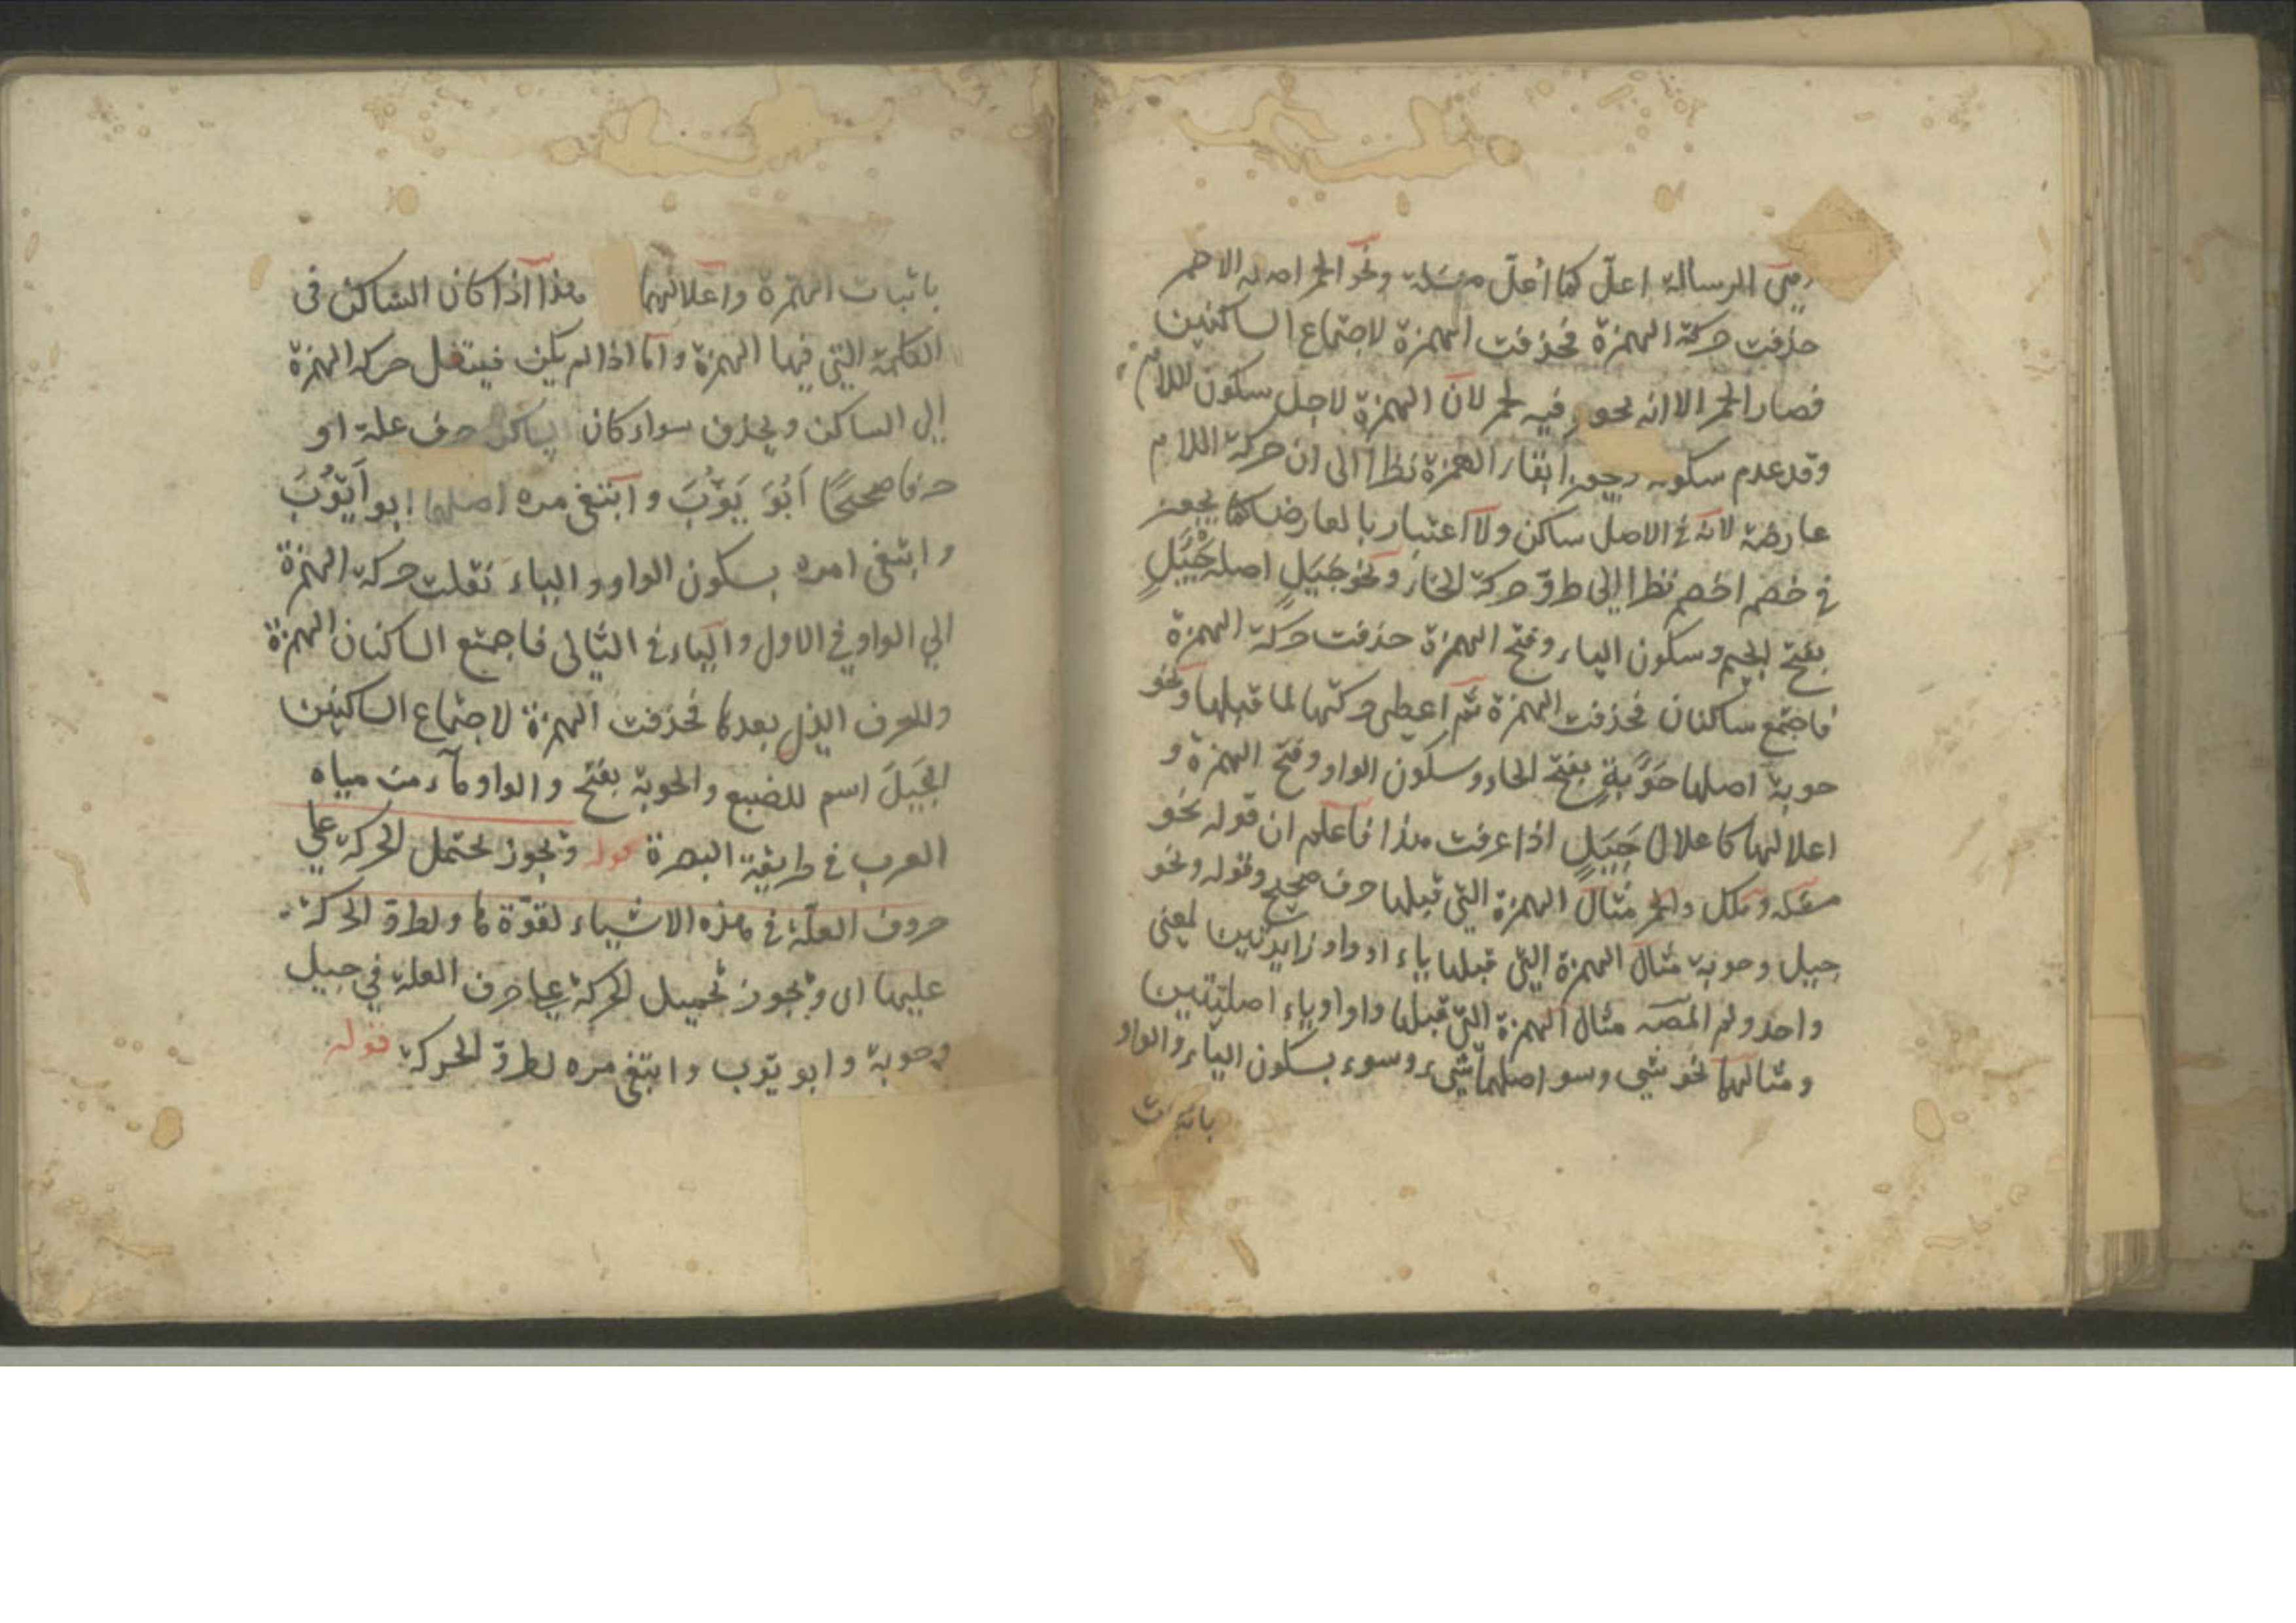 الرسالة اعلّ كما أعلّ مسَلة ونحو الحمر اصله الاحمر
حذفت حركة الهمزة فحذفت الهمزة لاجتماع الساكنين
فصار الحمر الا انه يجوز فيه لحمر لان الهمزة لاجل سكون اللام
وقد عدم سكونه ويجوز ابقاء الهمزة نظرا الى ان حركة اللام
عارضة لانه في الاصل ساكن ولا اعتبار بالعارض كما يجوز
في خصم اخصم نظرا الى طروّ حركة الخاء ونحو جَيَلٍ اصله جَيْئَلٍ
بفتح الجيم وسكون الياء وفتح الهمزة حذفت حركة الهمزة
فاجتمع ساكنان فحذفت الهمزة ثم اعطى حركتها لما قبلها ونحو
حوبة اصلها حَوْءَبةٍ بفتح الحاء وسكون الواو وفتح الهمزة و
اعلالها كاعلال جَيَلٍ اذا عرفت هذا فاعلم ان قوله نحو
مسَلة وملك والحمر مثال الهمزة التي قبلها حرف صحيح وقوله ونحو
جيل وحوبة مثال الهمزة التي قبلها ياء او واو زايدتين لمعنى
واحد ولم المصـ مثال الهمزة التي قبلها واو او ياء اصليّتين
ومثالهما نحو شي وسو اصلهما شيء وسوء بسكون الياء والواو
باثبات
باثبات الهمزة واعلالهما هذا اذا كان الساكن فى
الكلمة التي فيها الهمزة واما اذا لم يكن فينتقل حركة الهمزة
إلى الساكن ويحذف سواء كان الساكن حرف علة او
حرفا صحيحًا اَبُوَ يَوُّبَ وابتغى مره اصلها ابو اَيّوُبَ
وابتغى امره بسكون الواو والياء نقلت حركة الهمزة
الي الواو في الاول والياء في الثاني فاجتمع الساكنان الهمزة
وللحرف الذي بعدها فحذفت الهمزة لاجتماع الساكنين
الجَيَلَ اسم للضبع والحوبة بفتح والواو ماء من مياه
العرب في طريقة البصرة قوله ويجوز تحتمل الحركة على
حروف العلّة في هذه الاشياء لقوّة ها ولطروّ الحركة
عليها اى ويجوز تحميل الحركة على حرف العلة في جيل
وحوبة وابو يّوب وابتغى مره لطروّ الحركة قوله